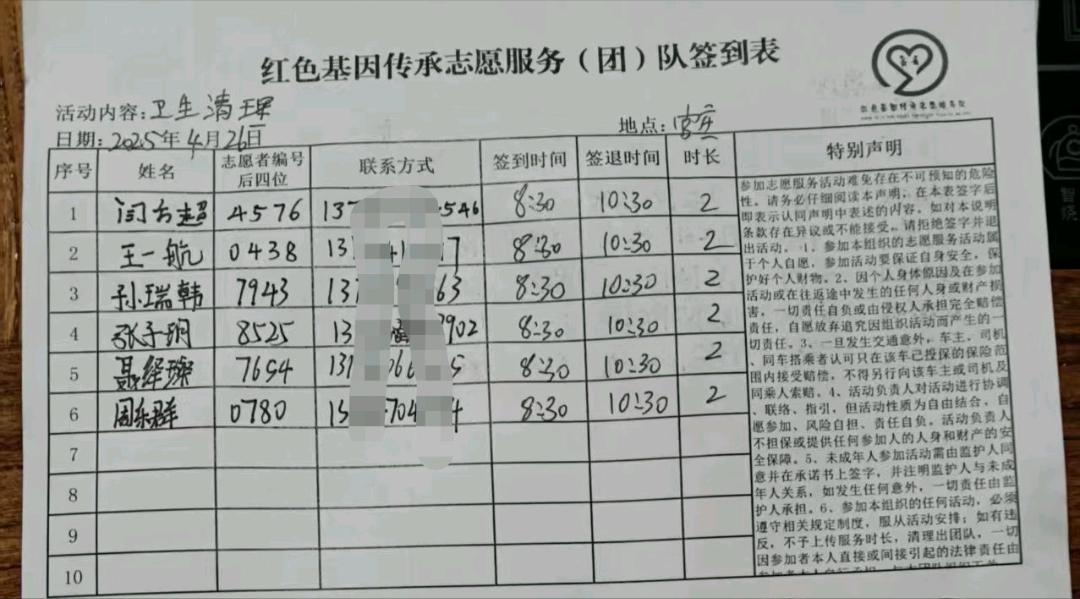 红色基因传承志愿服务（团）队签到表
活动内容：卫生清理
日期：2025年4月26日
地点：宫庄
序号 姓名 志愿者编号后四位 联系方式 签到时间 签退时间 时长 特别声明
1 闫方超 4576 137 546 8:30 10:30 2
2 王一航 0438 13 7 8:30 10:30 2
3 孙瑞韩 7943 137 63 8:30 10:30 2
4 张子玥 8525 13 902 8:30 10:30 2
5 聂经璨 7654 13 5 8:30 10:30 2
6 周乐群 0780 13 704 4 8:30 10:30 2
7
8
9
10
参加志愿服务活动难免存在不可预知的危险
性。请务必仔细阅读本声明，在本表签字后
即表示认同声明中表述的内容。如对本说明
条款存在异议或不能接受，请拒绝签字并退
出活动。1、参加本组织的志愿服务活动属
于个人自愿，参加活动要保证自身安全，保
护好个人财物。2、因个人身体原因及在参加
活动或在往返途中发生的任何人身或财产损
害，一切责任自负或由侵权人承担完全赔偿
责任，自愿放弃追究因组织活动而产生的一
切责任。3、一旦发生交通意外，车主、司机
、同车搭乘者认可只在该车已投保的保险范
围内接受赔偿，不得另行向该车主或司机及
同乘人索赔。4、活动负责人对活动进行协调
、联络、指引，但活动性质为自由结合，自
愿参加、风险自担、责任自负。活动负责人
不担保或提供任何参加人的人身和财产的安
全保障。5、未成年人参加活动需由监护人同
意并在承诺书上签字，并注明监护人与未成
年人关系，如发生任何意外，一切责任由监
护人承担。6、参加本组织的任何活动，必须
遵守相关规定制度，服从活动安排；如有违
反，不予上传服务时长，清理出团队，一切
因参加者本人直接或间接引起的法律责任由